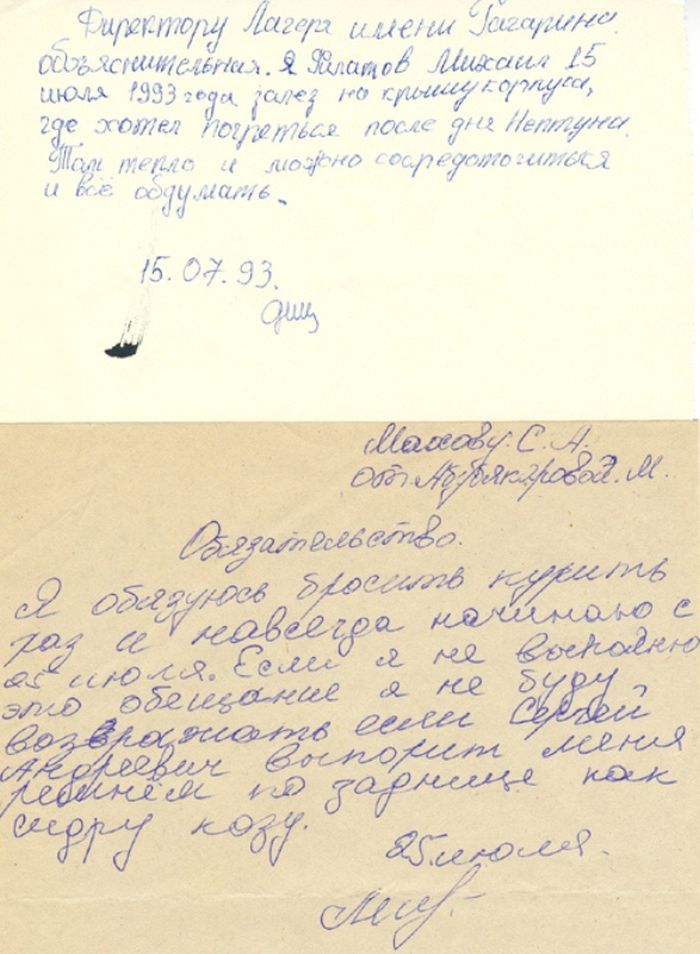 Директору Лагеря имени Гагарина.
объяснительная. Я Филатов Михаил 15
июля 1993 года залез на крышу корпуса,
где хотел погреться после дня Нептуна.
Там тепло и можно сосредоточиться
и всё обдумать.
15.07.93.
Махову. С. А.
от. М.
Обязательство.
Я обязуюсь бросить курить
раз и навсегда начинаю с
25 июля. Если я не выполню
это обещание я не буду
возвражать если Сергей
Андреевич выпорит меня
ремнём по заднице как
сидру козу.
25 июля.